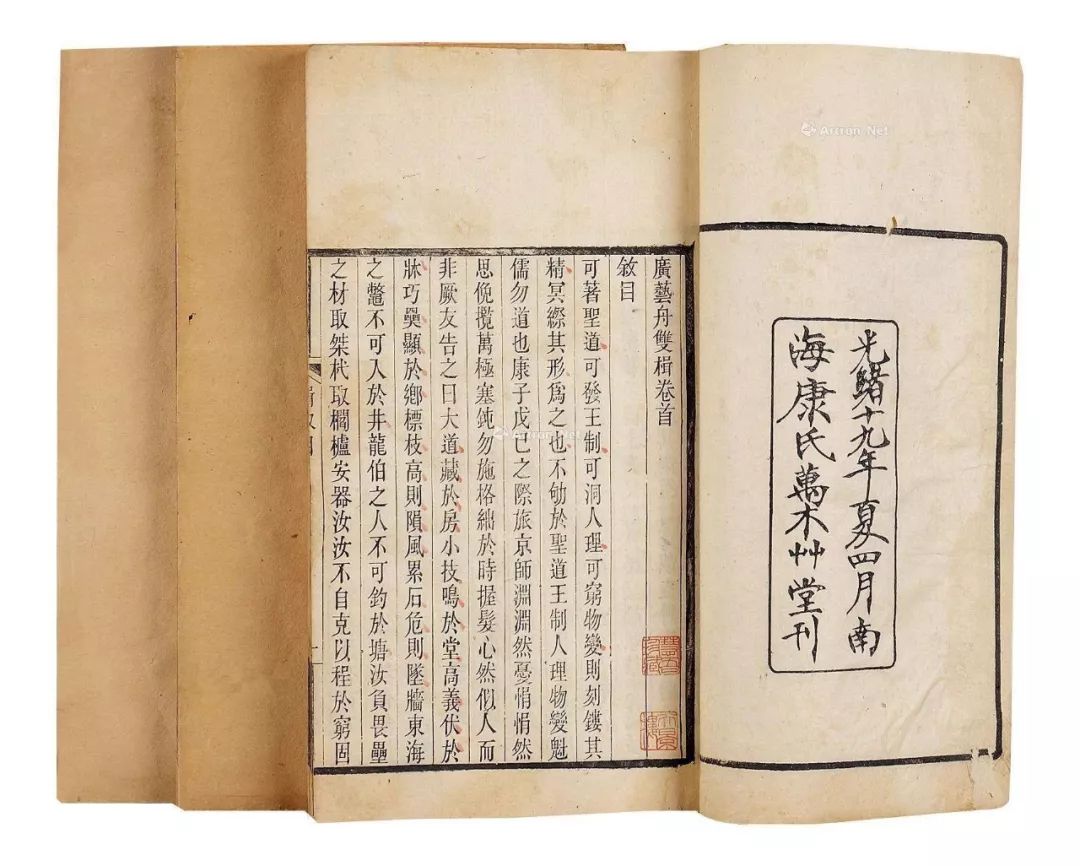 光緒十九年夏四月南
海康氏萬木艸堂刊
廣藝舟雙楫卷首
敘目
可著聖道可發王制可洞人理可窮物變則刻鏤其
精冥縩其形為之也不劬於聖道王制人理物變魁
儒勿道也康子戊己之際旅京師淵淵然憂悁悁然
思俛攬萬極塞鈍勿施格絀於時握髮心然似人而
非厥友告之曰大道藏於房小技鳴於堂高義伏於
牀巧奰顯於鄉標枝高則隕風累石危則墜牆東海
之鼈不可入於井龍伯之人不可鈞於塘汝負畏壘
之材取桀杙取櫩櫨安器汝汝不自克以程於窮固
Artron.Net
Artron.Net